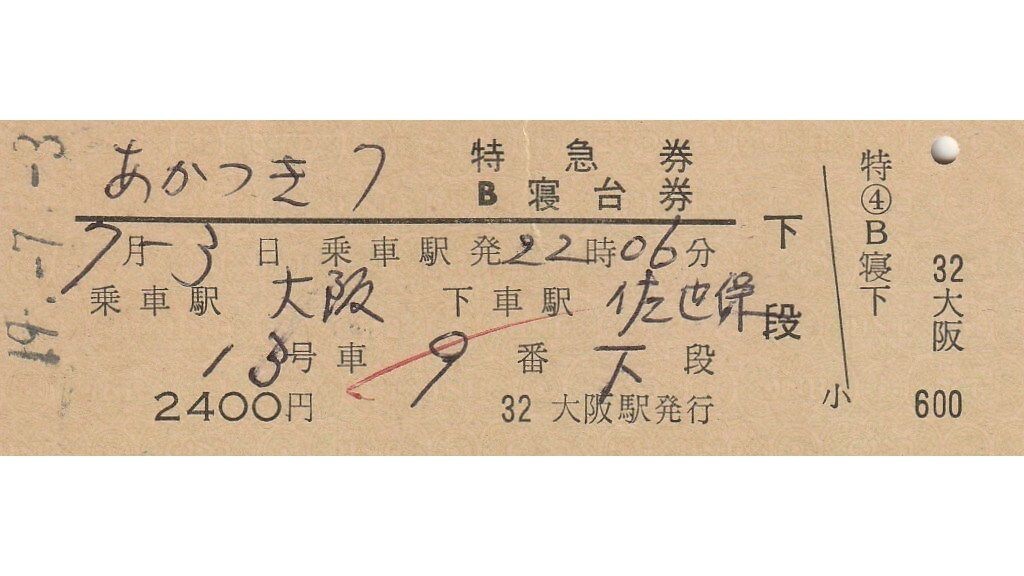 49.-7.-3
あかつき7 特急券
B寝台券
7月3日 乗車駅発22時06分
乗車駅 大阪 下車駅 佐世保
13号車 9番 下段
2400円 32 大阪駅発行
下段
特④B寝下
小
32大阪
600